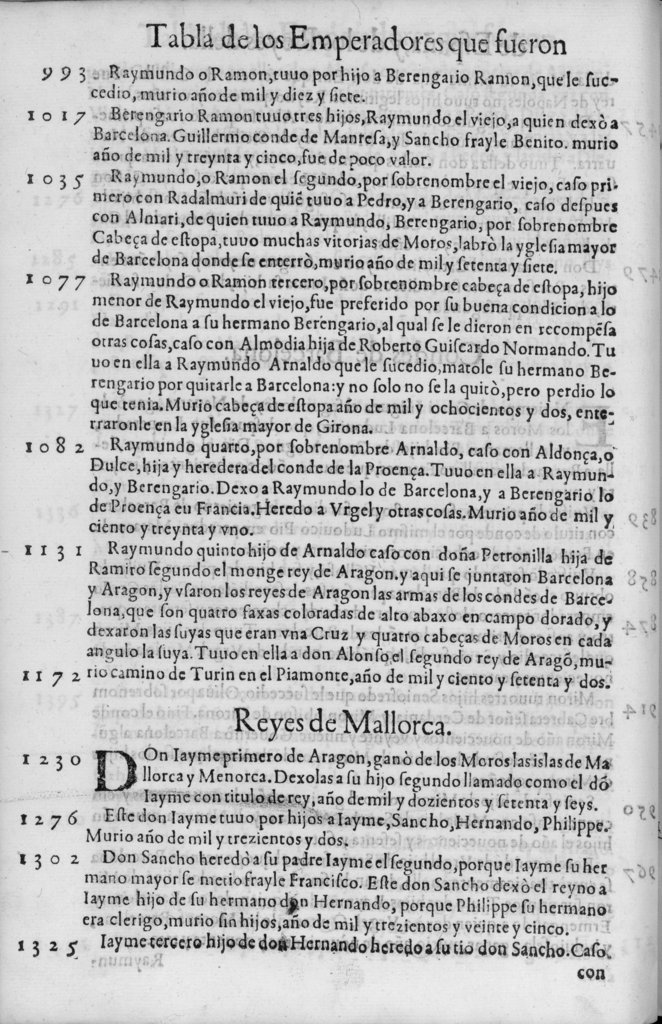 Tabla de los Emperadores que fueron
993 Raymundo o Ramon, tuuo por hijo a Berengario Ramon, que le suc-
cedio, murio año de mil y diez y siete.
1017 Berengario Ramon tuuo tres hijos, Raymundo el viejo, a quien dexò a
Barcelona. Guillermo conde de Manresa, y Sancho frayle Benito. murio
año de mil y treynta y cinco, fue de poco valor.
1035 Raymundo, o Ramon el segundo, por sobrenombre el viejo, caso pri-
mero con Radalmuri de quiē tuuo a Pedro, y a Berengario, caso despues
con Almiari, de quien tuuo a Raymundo, Berengario, por sobrenombre
Cabeça de estopa, tuuo muchas vitorias de Moros, labrò la yglesia mayor
de Barcelona donde se enterrò, murio año de mil y setenta y siete.
1077 Raymundo o Ramon tercero, por sobrenombre cabeça de estopa, hijo
menor de Raymundo el viejo, fue preferido por su buena condicion a lo
de Barcelona a su hermano Berengario, al qual se le dieron en recompēsa
otras cosas, caso con Almodia hija de Roberto Guiscardo Normando. Tu
uo en ella a Raymundo Arnaldo que le sucedio, matole su hermano Be-
rengario por quitarle a Barcelona: y no solo no se la quitò, pero perdio lo
que tenia. Murio cabeça de estopa año de mil y ochocientos y dos, ente-
rraronle en la yglesia mayor de Girona.
1082 Raymundo quarto, por sobrenombre Arnaldo, caso con Aldonça, o
Dulce, hija y heredera del conde de la Proença. Tuuo en ella a Raymun-
do, y Berengario. Dexo a Raymundo lo de Barcelona, y a Berengario lo
de Proença en Francia. Heredo a Vrgel y otras cosas. Murio año de mil y
ciento y treynta y vno.
1131 Raymundo quinto hijo de Arnaldo caso con doña Petronilla hija de
Ramiro segundo el monge rey de Aragon. y aqui se juntaron Barcelona
y Aragon, y vsaron los reyes de Aragon las armas de los condes de Barce-
lona, que son quatro faxas coloradas de alto abaxo en campo dorado, y
dexaron las suyas que eran vna Cruz y quatro cabeças de Moros en cada
angulo la suya. Tuuo en ella a don Alonso el segundo rey de Aragō, mu-
1172 rio camino de Turin en el Piamonte, año de mil y ciento y setenta y dos.
Reyes de Mallorca.
1230 DOn Iayme primero de Aragon, ganò de los Moros las islas de Ma
llorca y Menorca. Dexolas a su hijo segundo llamado como el dō
Iayme con titulo de rey, año de mil y dozientos y setenta y seys.
1276 Este don Iayme tuuo por hijos a Iayme, Sancho, Hernando, Philippe.
Murio año de mil y trezientos y dos.
1302 Don Sancho heredò a su padre Iayme el segundo, porque Iayme su her
mano mayor se metio frayle Francisco. Este don Sancho dexò el reyno a
Iayme hijo de su hermano don Hernando, porque Philippe su hermano
era clerigo, murio sin hijos, año de mil y trezientos y veinte y cinco.
1325 Iayme tercero hijo de don Hernando heredo a su tio don Sancho. Caso
con